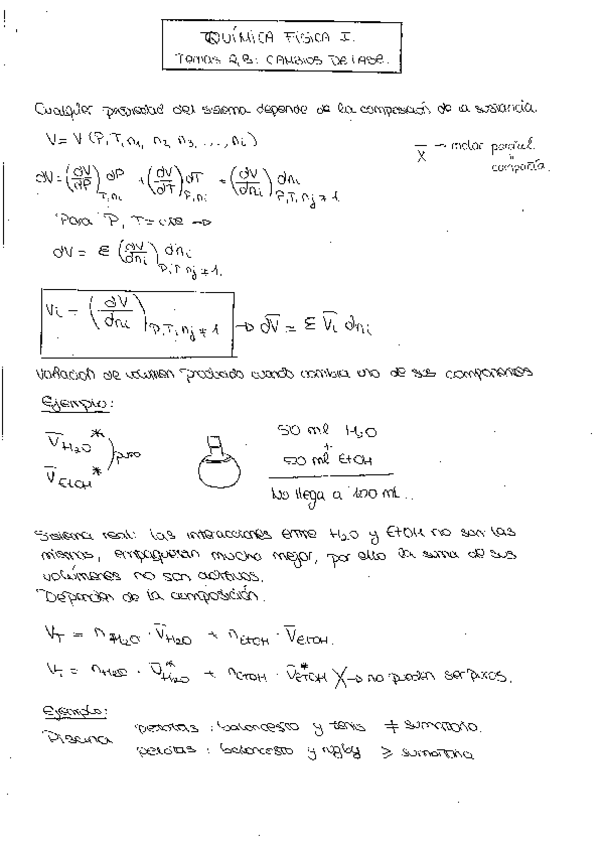 QUÍMICA FÍSICA I.
Temas 2,3: CAMBIOS DE FASE.
Cualquier propiedad del sistema depende de la composición de la sustancia.
V = V (P, T, n₁, n₂, n₃, ..., nᵢ)
X̄ → molar parcial.
dV = (dV/dP)T,nᵢ dP + (dV/dT)P,nᵢ dT + (dV/dnᵢ)P,T,nⱼ≠1 dnᵢ
Para P, T = cte →
dV = Σ (dV/dnᵢ)P,T,nⱼ≠1. dnᵢ
Vᵢ = (dV/dnᵢ)P,T,nⱼ≠1 → dV̄ = Σ V̄ᵢ dnᵢ
Variación de volumen producido cuando cambia uno de sus componentes
Ejemplo:
V̄H₂O* ) puro
V̄EtOH*
50 ml H₂O
+
50 ml EtOH
No llega a 100 ml..
Sistema real: las interacciones entre H₂O y EtOH no son las
mismas, empaquetan mucho mejor, por ello la suma de sus
volúmenes no son aditivos.
Dependen de la composición.
VT = nH₂O · V̄H₂O + nEtOH · V̄EtOH.
VT = nH₂O · V̄*H₂O + nEtOH · V̄*EtOH X → no pueden ser puros.
Ejemplo:
Piscina pelotas : baloncesto y tenis ≠ sumatorio.
pelotas : baloncesto y rugby ≥ sumatorio